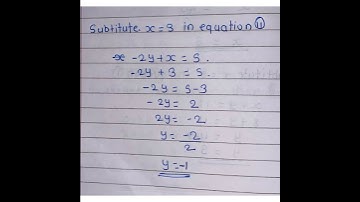 Subtitute x=3 in equation ⑪
-2y+x = 5.
-2y + 3 = 5.
-2y = 5-3
-2y = 2
2y = -2
y = -2
2
y=-1